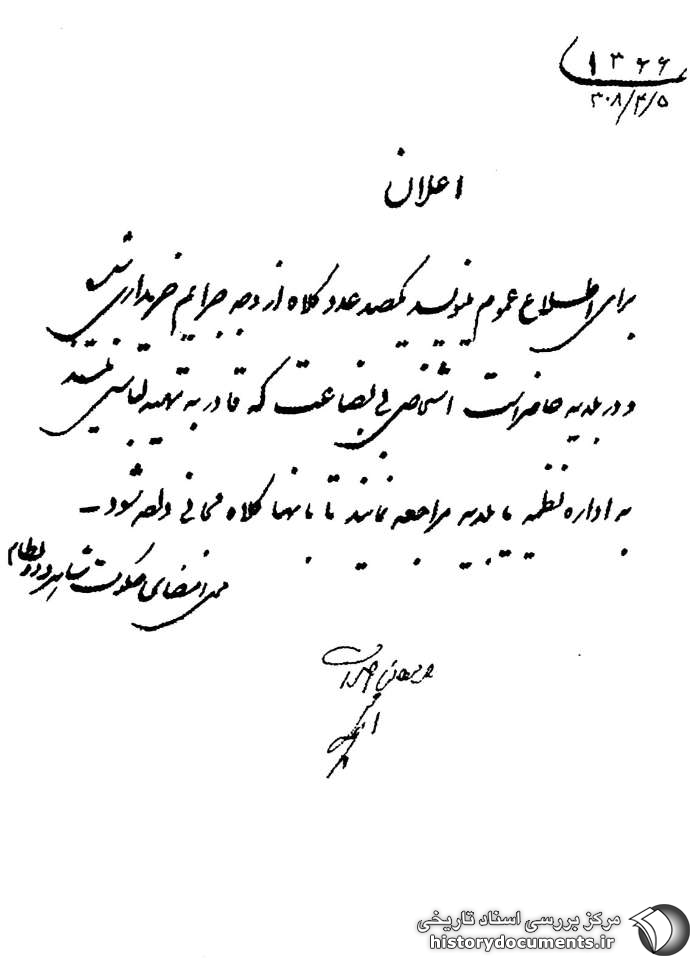 ۱۳۶۶
۳۰۸/۴/۵
اعلان
برای اطلاع عموم مینویسد یکصد عدد کلاه از وجه جرایم خریداری شده
و در بلدیه حاضر است اشخاص بی بضاعت که قادر به تهیه لباس نیستند
به اداره نظمیه یا بلدیه مراجعه نمایند تا بانها کلاه مجانی داده شود ـ
محل امضای حکومت شاهرود و بسطام
مرکز بررسی اسناد تاریخی
historydocuments.ir